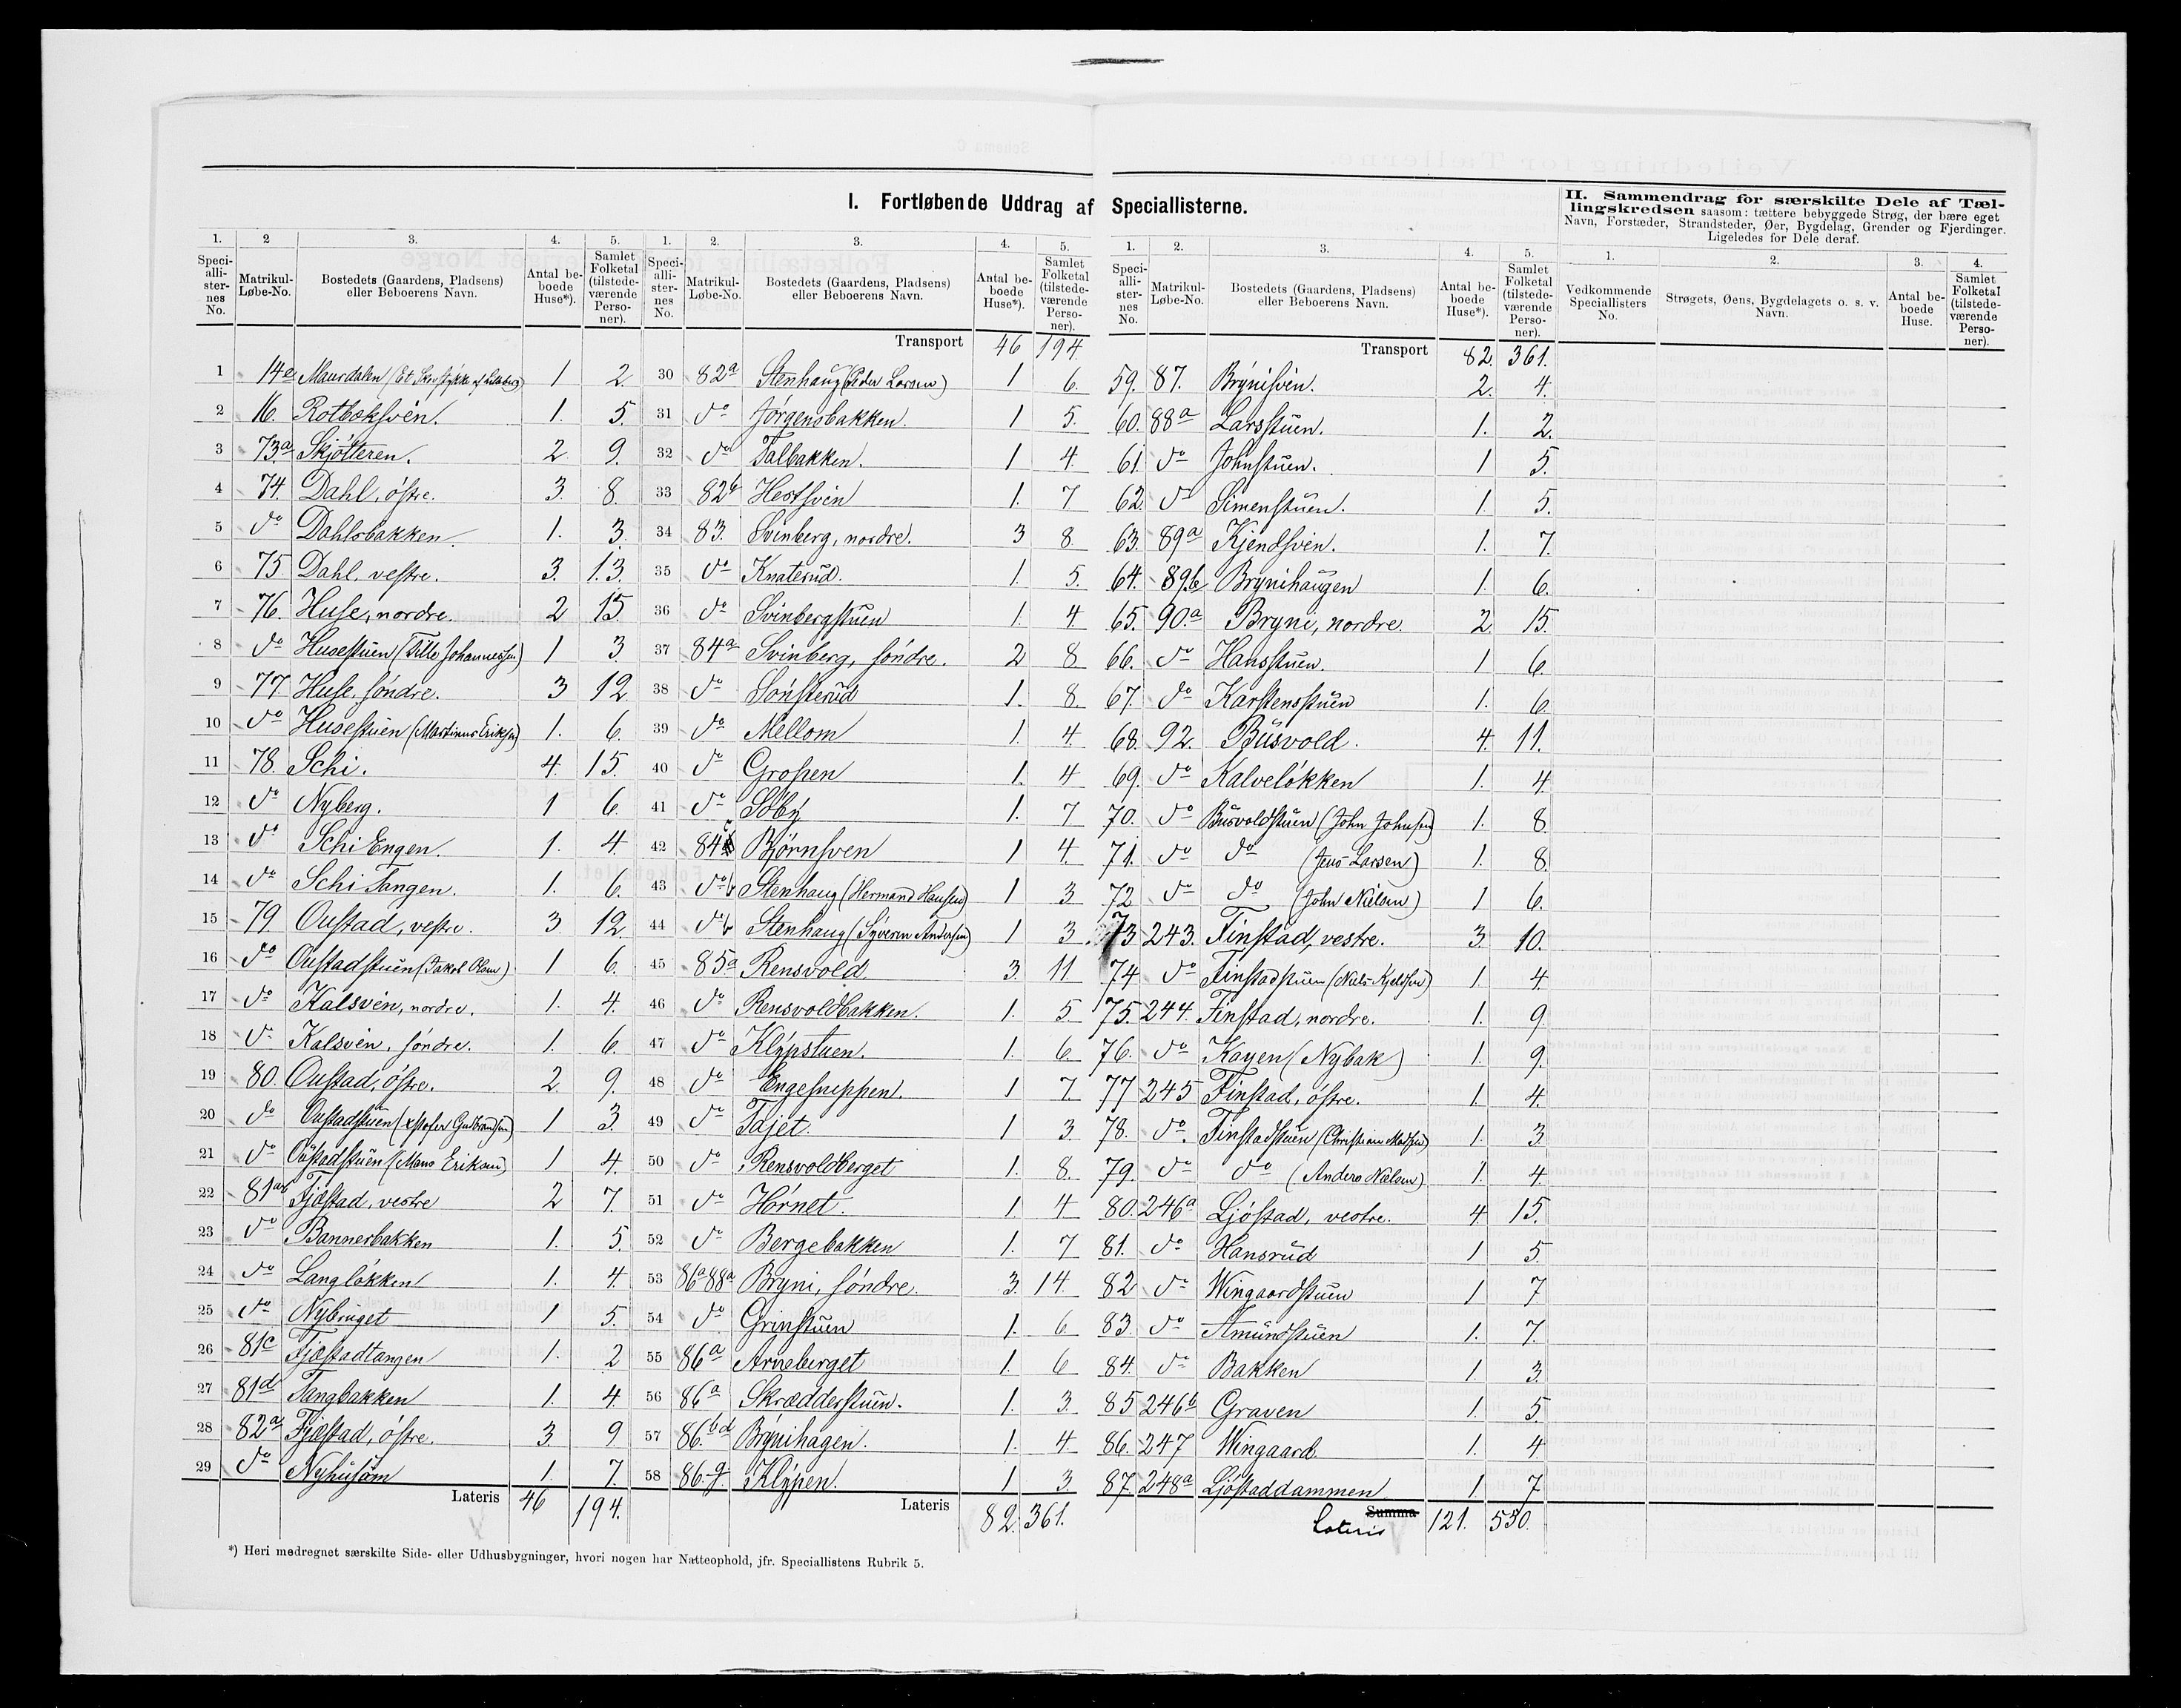 I. Fortløbende Uddrag af Speciallisterne.
II. Sammendrag for særskilte Dele af Tæl-
lingskredsen saasom: tættere bebyggede Strøg, der bære eget
Navn, Forstæder, Strandsteder, Øer, Bygdelag, Grender og Fjerdinger.
Ligeledes for Dele deraf.
1. 2 3. 4. 5.
Speci-alli-ster-nes No. Matrikul-Løbe-No. Bostedets (Gaardens, Pladsens) eller Beboerens Navn. Antal be-boede Huse*). Samlet Folketal (tilstede-værende Perso-ner).
1 14e Maurdalen (Et Skovstykke af 1 2
2 16. Rotboksvèn. 1. 5.
3 73a Skjötteren. 2 9.
4 74. Dahl, östre. 3. 8.
5 do Dahlsbakken. 1. 3.
6 75. Dahl, vestre. 3. 13.
7 76. Huse, nordre. 2 15.
8 do Husestuen (Tille Johannessen) 1 3.
9 77 Huse, söndre. 3 12
10 do Husestuen (Martinus Eriksen) 1. 6.
11 78. Schi. 4. 15.
12 do Nyberg. 1 6.
13 do Schi Engen. 1. 4.
14 do Schi Tangen. 1. 6.
15 79. Oustad, vestre. 3. 12
16 do Oustadstuen (Jakob Olsen) 1 6.
17 do Kalsvèn, nordre. 1. 4.
18 do Kalsvèn, söndre. 1. 6.
19 80. Oustad, östre. 2 9.
20 do Oustadstuen (Xstofer Gulbrandsen) 1 3.
21 do Oustadstuen (Mons Eriksen) 1 4.
22 81ab Fjæstad, vestre 2 7.
23 do Bannerbakken 1. 5.
24 do Langlökken 1. 4.
25 do Nybruget 1 5.
26 81c Fjæstadtangen 1. 2
27 81d Tangbakken 1. 4.
28 82a Fjæstad, östre. 3. 9
29 do Nyhusom 1. 7.
Lateris 46 194.
1. 2. 3. 4. 5.
Speci-alli-ster-nes No. Matrikul-Løbe-No. Bostedets (Gaardens, Pladsens) eller Beboerens Navn. Antal be-boede Huse*). Samlet Folketal (tilstede-værende Perso-ner).
Transport 46 194.
30 82a Stenhaug (Peder Larsen) 1 6.
31 do Jörgensbakken. 1 5.
32 do Talbakken. 1 4.
33 82b Hestsvèn 1. 7
34 83. Svinberg, nordre. 3 8
35 do Knaterud. 1. 5.
36 do Svinbergstuen 1. 4.
37 84a Svinberg, söndre. 2 8
38 do Sönsterud 1. 8.
39 do Mellom 1. 4.
40 do Gropen 1. 4
41 do Söby 1. 7
42 84c Björnsven 1 4.
43 do b Stenhaug (Hermand Hansen) 1 3
44 do b Stenhaug (Syveren Andersen) 1 3
45 85a Rensvold 3. 11
46 do Rensvoldbakken. 1. 5
47 do Klypstuen. 1. 6.
48 do Engesnippen. 1 7.
49 do Tajet. 1 3.
50 do Rensvoldberget 1. 8.
51 do Hörnet. 1 4
52 do Bergebakken 1. 7
53 86a 88a Bryni, söndre. 3. 14.
54 do Grinstuen 1. 6
55 86a Arneberget 1. 6
56 86a Skrædderstuen. 1. 3.
57 86.bd Brynihagen. 1. 4.
58 86.g. Klypen. 1 3.
Lateris 82. 361.
1. 2. 3. 4. 5.
Speci-alli-ster-nes No. Matrikul-Løbe-No. Bostedets (Gaardens, Pladsens) eller Beboerens Navn. Antal be-boede Huse*). Samlet Folketal (tilstede-værende Perso-ner).
Transport 82. 361.
59. 87. Brynisvèn. 2. 4.
60. 88a Larsstuen. 1. 2.
61. do Johnstuen. 1 5.
62. do Simenstuen. 1. 5.
63. 89a Kjendsvèn. 1. 7.
64. 89b Brynihaugen 1. 6.
65. 90.a Bryni, nordre. 2. 15.
66. do Hansstuen. 1 6.
67. do Karstensstuen 1. 6
68. 92. Busvold. 4. 11.
69. do Kalvelökken 1. 4.
70. do Busvoldstuen (John Johnsen) 1. 8
71. do do (Jens Larsen) 1. 8.
72 do do (John Nielsen) 1 6.
73 243. Finstad, vestre. 3. 10.
74 do Finstadstuen (Niels Kjeldsen) 1. 4
75. 244. Finstad, nordre. 1. 9
76. do Kayen (Nybak) 1. 9.
77 245 Finstad, östre. 1. 4.
78. do. Finstadstuen (Christian Madsen) 1. 3
79. do do (Anders Nielsen) 1. 4.
80. 246a Ljöstad, vestre. 4 15.
81. do Hansrud 1 5.
82 do Wingaardstuen 1 7
83. do Amundstuen 1. 7.
84. do Bakken 1. 3.
85 246b Graven 1. 5.
86. 247 Wingaard. 1. 4
87. 248a Ljöstaddammen 1 7
Summa
Lateris 121. 530.
1. 2. 3. 4.
Vedkommende Speciallisters No. Strøgets, Øens, Bygdelagets o. s. v. Navn. Antal be-boede Huse. Samlet Folketal (tilstede-værende Perso-ner).
*) Heri medregnet særskilte Side- eller Udhusbygninger, hvori nogen har Natteophold, jfr. Speciallistens Rubrik 5.